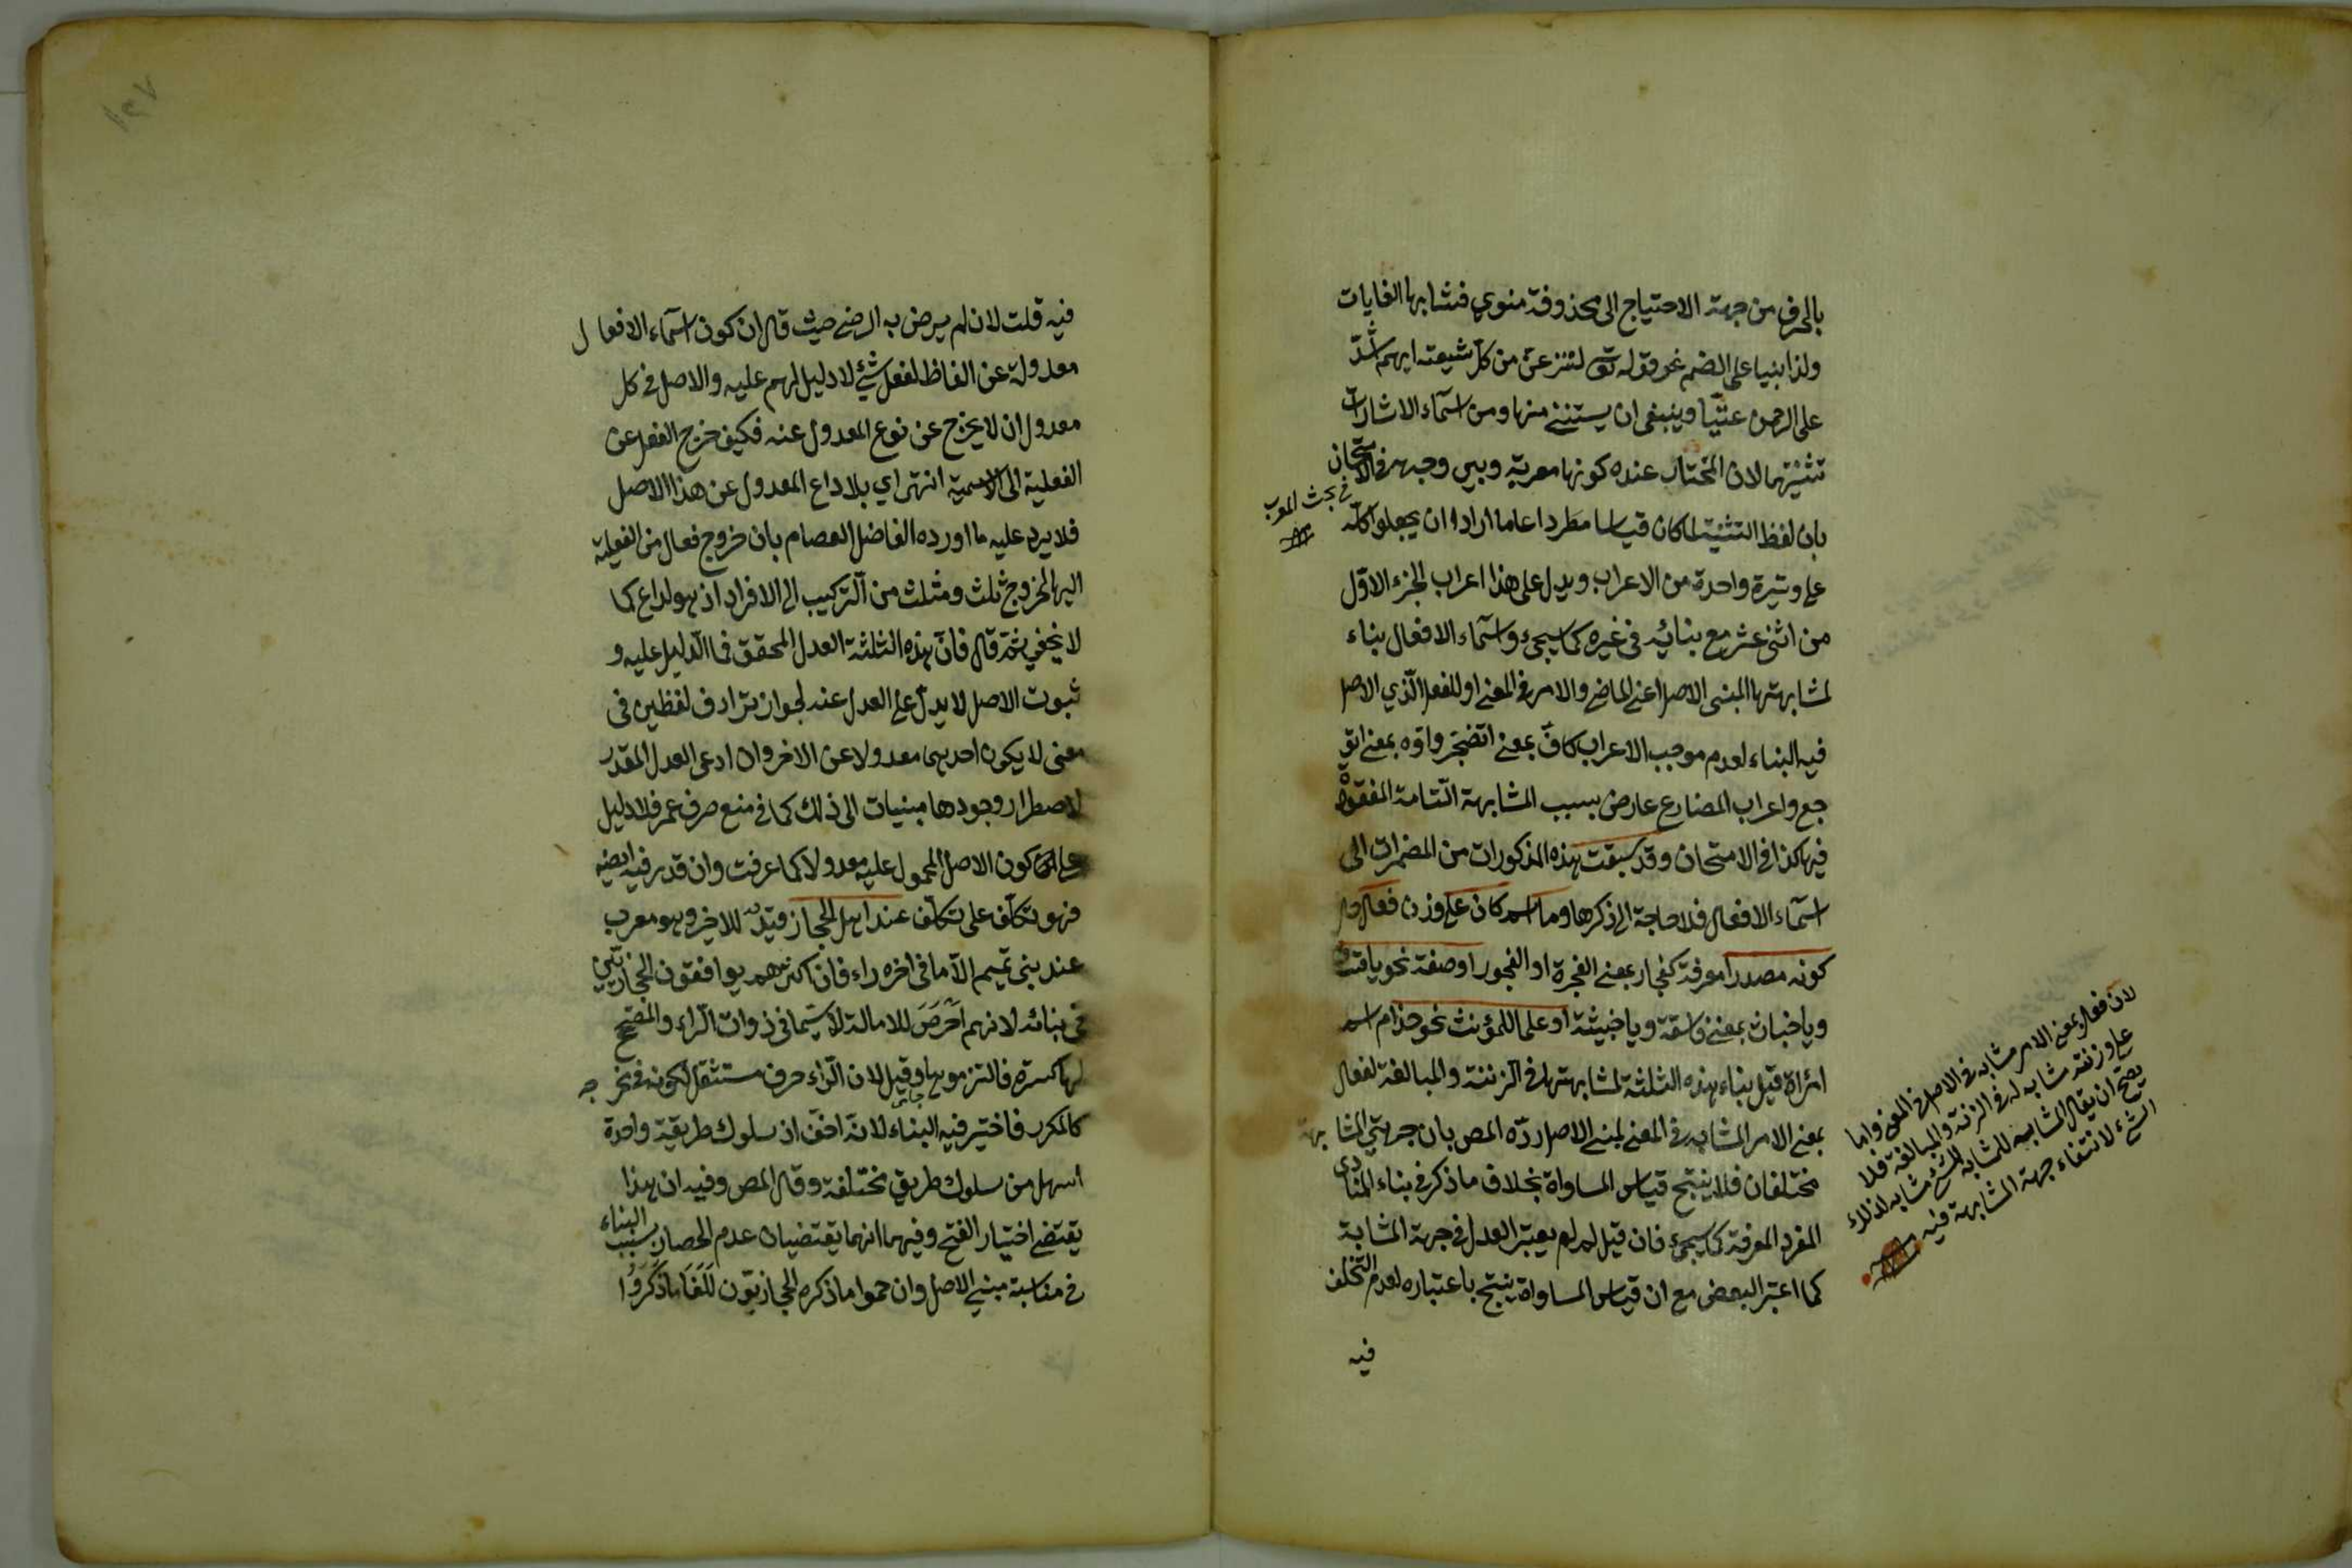 بالحرف من جهة الاحتياج الى محذوفة منوي فتشابها الغايات
ولذا بنيا على الضم نحو قوله تع لننزعن من كل شيعة ايهم اشد
على الرحمن عتيا وينبغي ان يستثنى منها ومن اسماء الاشارات
تثنيتهما لان المختار عنده كونها معربة وبين وجهه في الامتحان
في بحث المعرب
بان لفظ التثنية لما كان قياسا مطردا عاما ارادوا ان يجعلوا كله
على وتيرة واحدة من الاعراب ويدل على هذا اعراب الجزء الاول
من اثنى عشر مع بنائه في غيره كما سيجئ واسماء الافعال بناء
لمشابهتها المبنى الاصل اعنى الماضي والامر في المعنى او للفعل الذي الاصل
فيه البناء لعدم موجب الاعراب كاف بمعنى اتضجر واوه بمعنى اتو
جع واعراب المضارع عارض بسبب المشابهة التامة المفقودة
فيها كذا في الامتحان وقد سبقت هذه المذكورات من المضمرات الى
اسماء الافعال فلا حاجة الى ذكرها وما اسم كان على وزن فعال حال
كونه مصدرا معرفة كفجار بمعنى الفجرة او الفجور او صفة نحو يا فساق
ويا خباث بمعنى فاسقة ويا خبيثة او علما للمؤنث نحو حذام اسم
امرأة قيل بناء هذه الثلثة لمشابهتها في الزنة والمبالغة لفعال
بمعنى الامر المشابه في المعنى لمبنى الاصل رده المص بان جهتي المشابهة
مختلفان فلا ينتج قياس المساواة بخلاف ما ذكر في بناء المنادى
المفرد المعرفة كما سيجئ فان قيل لم لم يعتبر العدل في جهة المشابهة
كما اعتبر البعض مع ان قياس المساواة ينتج باعتباره لعدم التخلف
فيه
لان فعال بمعنى الامر مشابه في الاصل في المعنى واما
على وزنته مشابه له في الزنة والمبالغة فلا
يصح ان يقال المشابه للمشابه لشئ مشابه لذلك
الشئ لانتفاء جهة المشابهة فيه
فيه قلت لان لم يرض به الرضي حيث قال ان كون اسماء الافعال
معدولة عن الفاظ لفعل شئ لا دليل لهم عليه والاصل في كل
معدول ان لا يخرج عن نوع المعدول عنه فكيف خرج الفعل عن
الفعلية الى الاسمية انتهى اي بلا داع المعدول عن هذا الاصل
فلا يرد عليه ما اورده الفاضل العصام بان خروج فعال من الفعلية
اليها لخروج ثلث ومثلث من التركيب الى الافراد اذ هو لداع كما
لا يخفى ثمة قال فان هذه الثلثة العدل المحقق فما الدليل عليه و
ثبوت الاصل لا يدل على العدل عنه لجواز ترادف لفظين في
معنى لا يكون احدهما معدولا عن الاخر وان ادعى العدل المقدر
لاضطرار وجودها مبنيات الى ذلك كما في منع صرف عمر فلا دليل
على كون الاصل المحمول عليه معدولا كما عرفت وان قدر فيه ايضا
فهو تكلف على تكلف عند اهل الحجاز قيد للاخير وهو معرب
عند بني تميم الا ما في اخره راء فان اكثرهم يوافقون الحجازيين
في بنائه لانهم احرص للامالة لا سيما في ذوات الراء والمصحح
لها كسرة فالتزموها وقيل لان الراء حرف مستثقل لكونه في مخرجه
كالمكرر فاختير فيه البناء لانه اخف اذ سلوك طريقة واحدة
اسهل من سلوك طريق مختلفة وقال المص وفيه ان هذا
يقتضى اختيار الفتح وفيهما انهما يقتضيان عدم انحصار سبب البناء
في مناسبة مبنى الاصل وان حموا ما ذكره الحجازيون لَلَغَا ما ذكروا